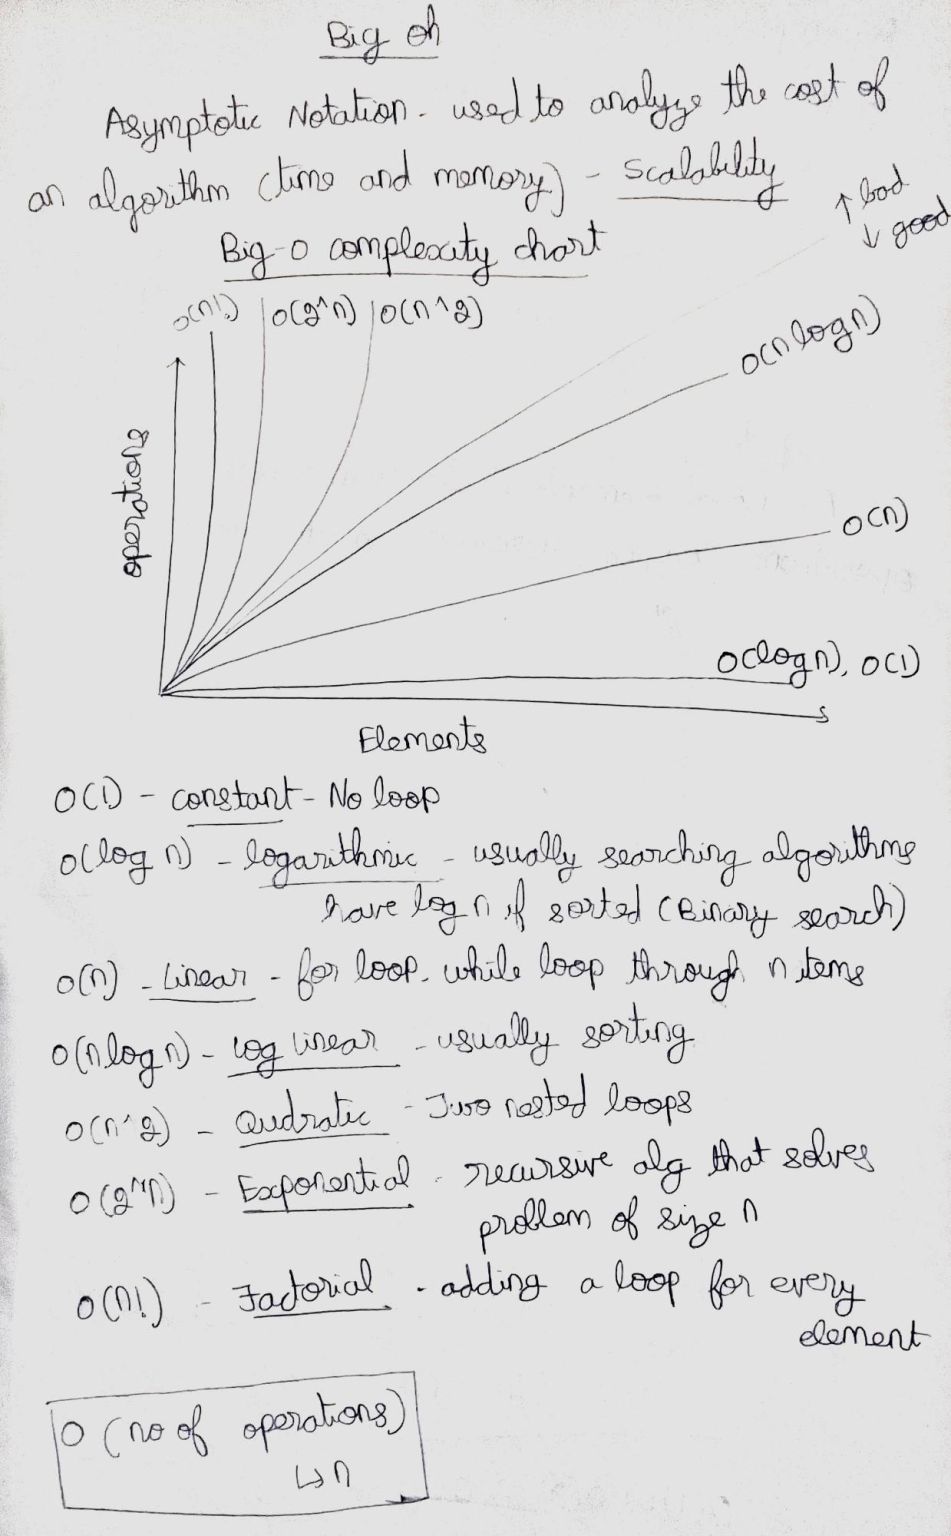 Big oh
Asymptotic Notation - used to analyze the cost of
an algorithm (time and memory) - scalability
↑ bad
↓ good
Big-O complexity chart
O(n!) O(2^n) O(n^2)
O(n log n)
operations
O(n)
O(log n), O(1)
Elements
O(1) - constant - No loop
O(log n) - logarithmic - usually searching algorithms
have log n if sorted (Binary search)
O(n) - Linear - for loop, while loop through n items
O(n log n) - Log linear - usually sorting
O(n^2) - Qudratic - Two nested loops
O(2^n) - Exponential - recursive alg that solves
problem of size n
O(n!) - Factorial - adding a loop for every
element
O (no of operations)
↳ n